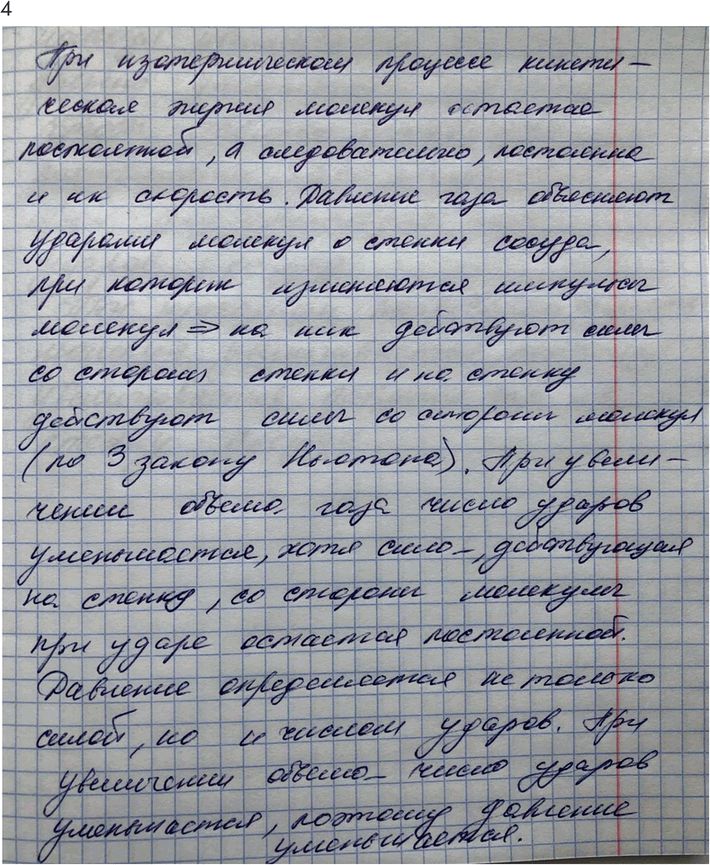 4
При изотермическом процессе кинети-
ческая энергия молекул остается
постоянной, а следовательно, постоянна
и их скорость. Давление газа объясняют
ударами молекул о стенки сосуда,
при которых изменяются импульсы
молекул ⇒ на них действуют силы
со стороны стенки и на стенку
действуют силы со стороны молекул
(по 3 закону Ньютона). При увели-
чении объема газа число ударов
уменьшается, хотя сила, действующая
на стенку, со стороны молекулы
при ударе остается постоянной.
Давление определяется не только
силой, но и числом ударов. При
увеличении объема число ударов
уменьшается, поэтому давление
уменьшается.